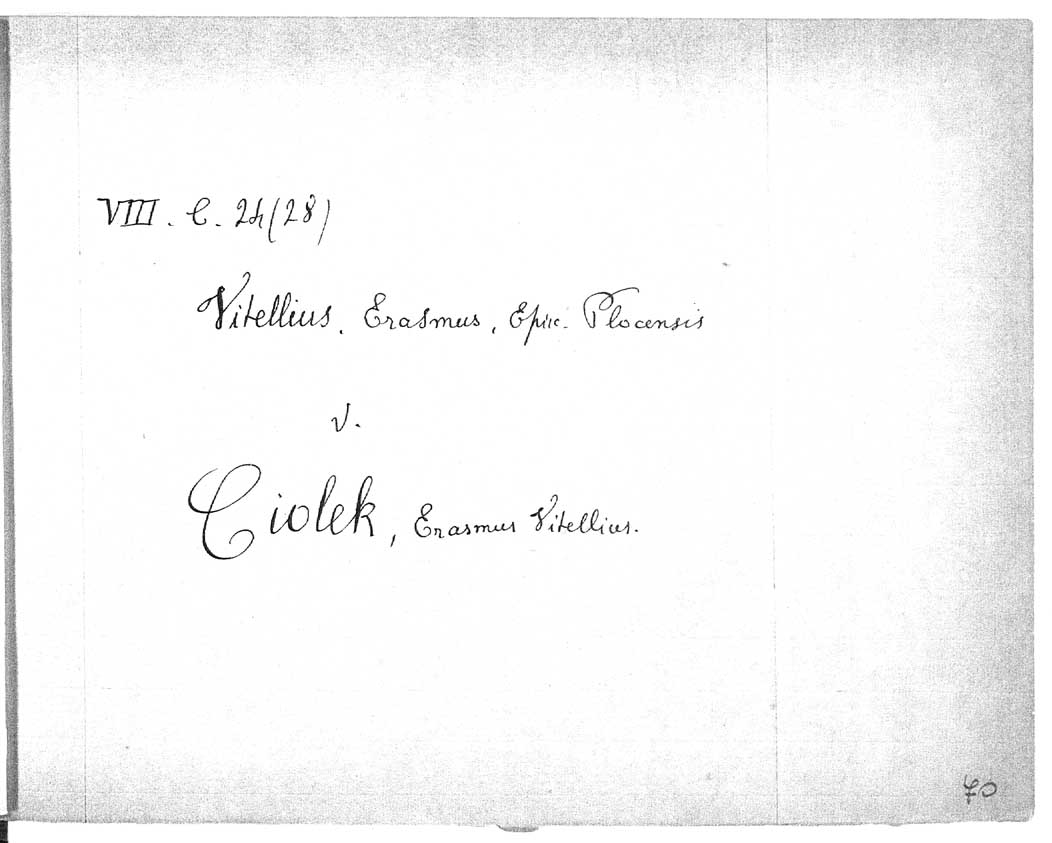 VIII. C. 24(28)
Vitellius, Erasmus, Episc. Plocensis
v.
Ciolek, Erasmus Vitellius.
70